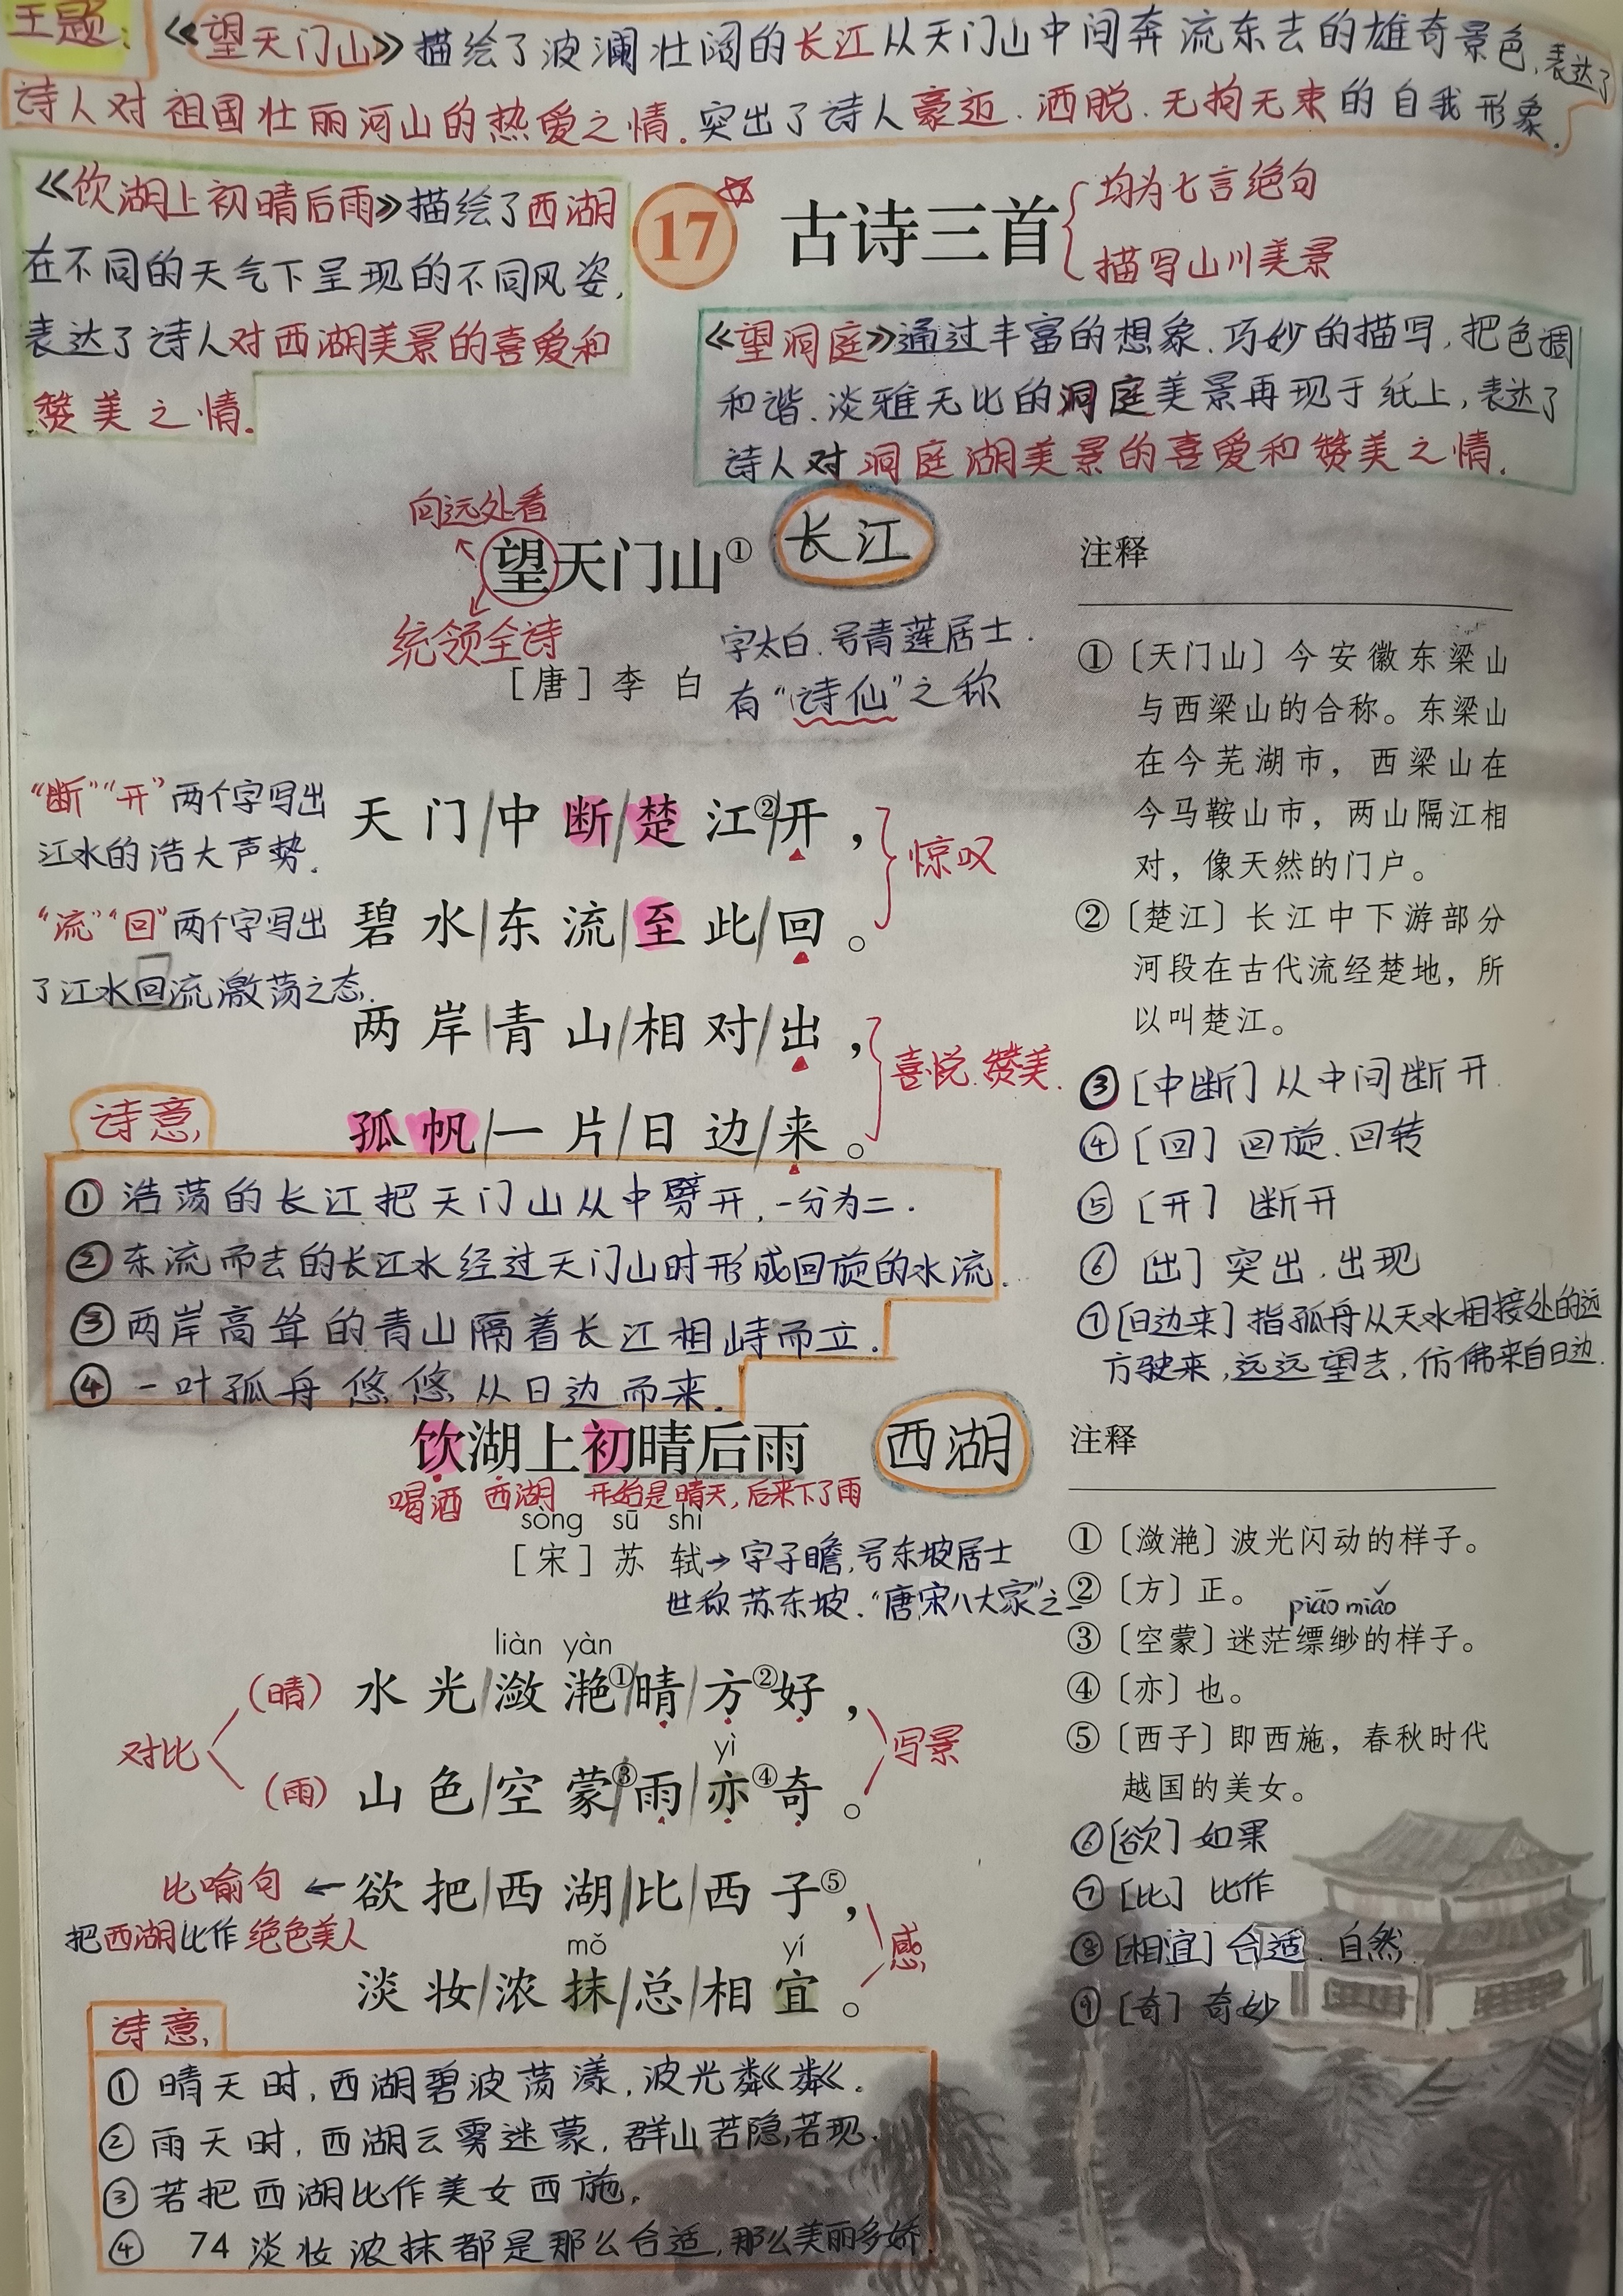 主题:《望天门山》描绘了波澜壮阔的长江从天门山中间奔流东去的雄奇景色,表达了
诗人对祖国壮丽河山的热爱之情.突出了诗人豪迈.洒脱.无拘无束的自我形象.
《饮湖上初晴后雨》描绘了西湖
在不同的天气下呈现的不同风姿,
表达了诗人对西湖美景的喜爱和
赞美之情.
17 古诗三首
均为七言绝句
描写山川美景
《望洞庭》通过丰富的想象.巧妙的描写,把色调
和谐.淡雅无比的洞庭美景再现于纸上,表达了
诗人对洞庭湖美景的喜爱和赞美之情.
向远处看
望天门山①
长江
统领全诗
字太白.号青莲居士.
[唐]李 白
有“诗仙”之称
“断”“开”两个字写出
江水的浩大声势.
天门/中断/楚江②/开,
惊叹
“流”“回”两个字写出
了江水回流激荡之态.
碧水/东流/至此/回。
两岸/青山/相对/出,
喜悦.赞美.
孤帆/一片/日边/来。
诗意,
①浩荡的长江把天门山从中劈开,一分为二.
②东流而去的长江水经过天门山时形成回旋的水流.
③两岸高耸的青山隔着长江相峙而立.
④一叶孤舟悠悠从日边而来.
注释
①〔天门山〕今安徽东梁山
与西梁山的合称。东梁山
在今芜湖市，西梁山在
今马鞍山市，两山隔江相
对，像天然的门户。
②〔楚江〕长江中下游部分
河段在古代流经楚地，所
以叫楚江。
③[中断]从中间断开.
④[回]回旋.回转
⑤[开]断开
⑥[出]突出.出现
⑦[日边来]指孤舟从天水相接处的远
方驶来,远远望去,仿佛来自日边.
饮湖上初晴后雨
西湖
喝酒 西湖 开始是晴天,后来下了雨
sòng sū shì
[宋]苏 轼→字子瞻,号东坡居士
世称苏东坡.“唐宋八大家”之一
liàn yàn
(晴)水光/潋滟①/晴/方②好,
对比
写景
yì
(雨)山色/空蒙③/雨/亦④奇。
比喻句←欲把/西湖/比/西子⑤,
把西湖比作绝色美人
感
mǒ yí
淡妆/浓抹/总/相宜。
诗意,
①晴天时,西湖碧波荡漾,波光粼粼.
②雨天时,西湖云雾迷蒙,群山若隐若现.
③若把西湖比作美女西施,
④淡妆浓抹都是那么合适,那么美丽多娇.
74
注释
①〔潋滟〕波光闪动的样子。
②〔方〕正。
piāo miǎo
③〔空蒙〕迷茫缥缈的样子。
④〔亦〕也。
⑤〔西子〕即西施，春秋时代
越国的美女。
⑥[欲]如果
⑦[比]比作
⑧[相宜]合适.自然
⑨[奇]奇妙